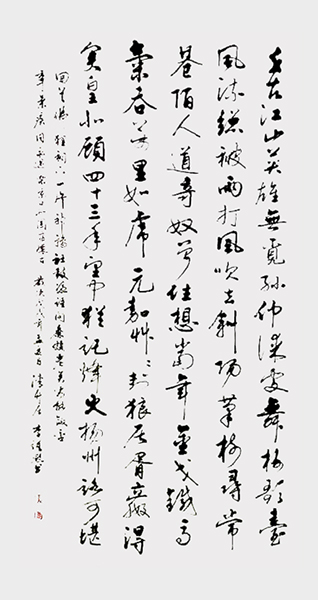 千古江山英雄無覓孫仲謀處舞榭歌臺
風流總被雨打風吹去斜陽草樹尋常
巷陌人道寄奴曾住想當年金戈鐵馬
氣吞萬里如虎元嘉草草封狼居胥贏得
倉皇北顧四十三年望中猶記烽火揚州路可堪
回首佛狸祠下一片神鴉社鼓憑誰問廉頗老矣尚能飯否
辛棄疾詞永遇樂京口北固亭懷古